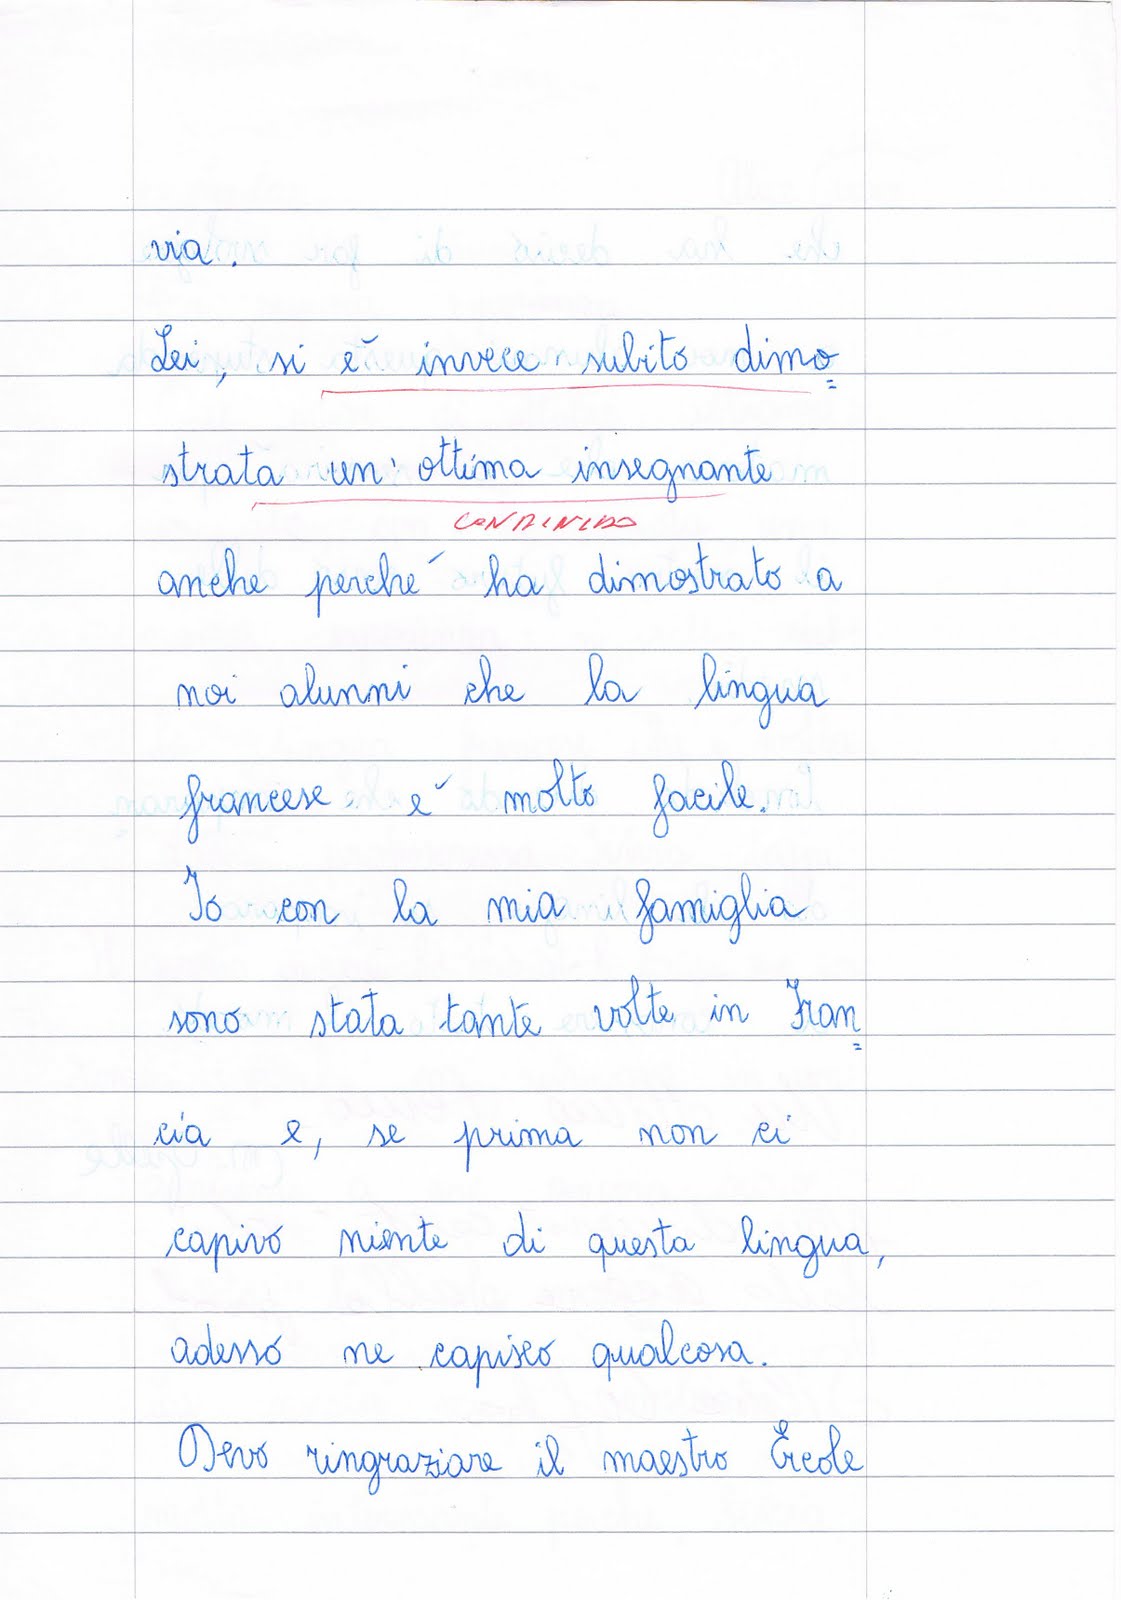 via.
Lei, si è invece subito dimo=
strata un' ottima insegnante
CONDIVIDO
anche perché ha dimostrato a
noi alunni che la lingua
francese è molto facile.
Io con la mia famiglia
sono stata tante volte in Fran=
cia e, se prima non ci
capivo niente di questa lingua,
adesso ne capisco qualcosa.
Devo ringraziare il maestro Ercole